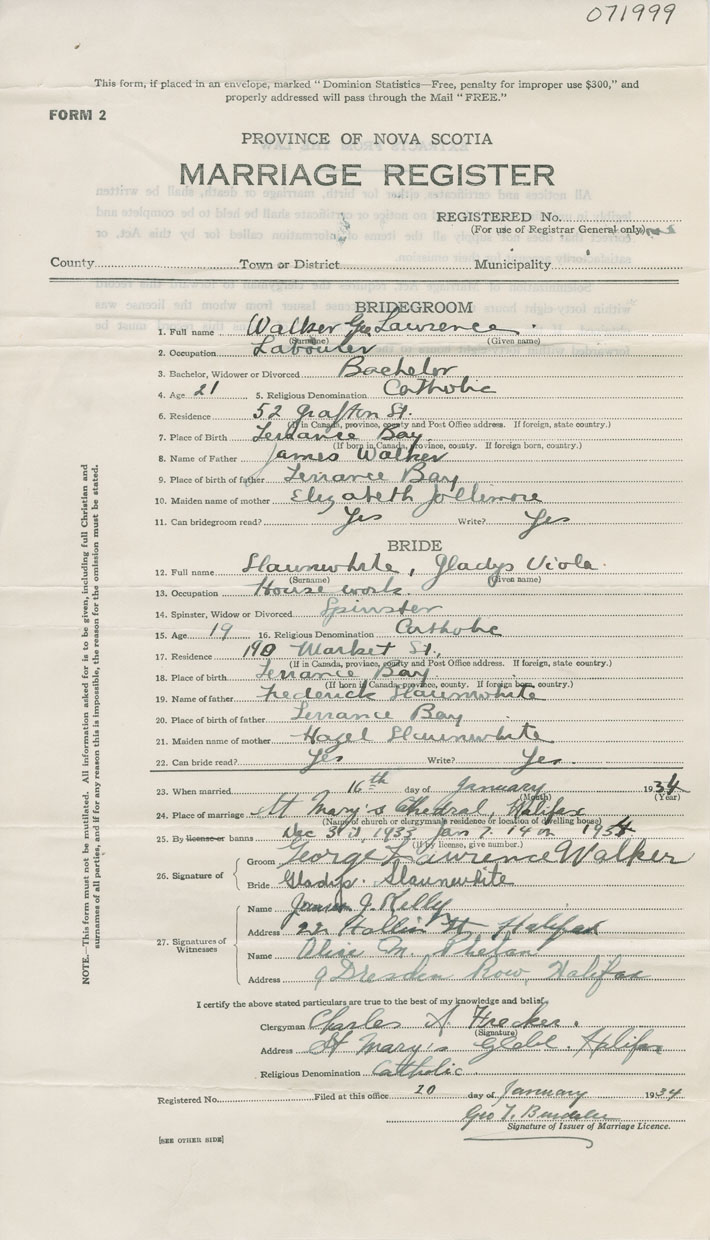 071999
This form, if placed in an envelope, marked "Dominion Statistics—Free, penalty for improper use $300," and
properly addressed will pass through the Mail "FREE."
FORM 2
PROVINCE OF NOVA SCOTIA
MARRIAGE REGISTER
REGISTERED No.
(For use of Registrar General only)
County Town or District Municipality
BRIDEGROOM
1. Full name Walker Geo Lawrence
(Surname) (Given name)
2. Occupation Labourer
3. Bachelor, Widower or Divorced Bachelor
4. Age 21 5. Religious Denomination Catholic
6. Residence 52 Grafton St.
(If in Canada, province, county and Post Office address. If foreign, state country.)
7. Place of Birth Terrance Bay
(If born in Canada, province, county. If foreign born, country.)
8. Name of Father James Walker
9. Place of birth of father Terrance Bay
10. Maiden name of mother Elizabeth Jollimore
11. Can bridegroom read? Yes Write? Yes
BRIDE
12. Full name Slaunwhite, Gladys Viola
(Surname) (Given name)
13. Occupation House work
14. Spinster, Widow or Divorced Spinster
15. Age 19 16. Religious Denomination Catholic
17. Residence 190 Market St.,
(If in Canada, province, county and Post Office address. If foreign, state country.)
18. Place of birth Terrance Bay
(If born in Canada, province, county. If foreign born, country.)
19. Name of father Frederick Slaunwhite
20. Place of birth of father Terrance Bay
21. Maiden name of mother Hazel Slaunwhite
22. Can bride read? Yes Write? Yes.
23. When married 16th day of January 1934
(Month) (Year)
24. Place of marriage St Mary's Cthedral, Halifax
(Name of church or clergyman's residence or location of dwelling house)
25. By license or banns Dec 31st, 1933 Jan 7. 14th 1934
(If by license, give number.)
26. Signature of
Groom George Lawrence Walker
Bride Gladys Slaunwhite
27. Signatures of Witnesses
Name James J. Kelly
Address 22 Hollis St, Halifax
Name Alice M. Phelan
Address 9 Dresden Row, Halifax
I certify the above stated particulars are true to the best of my knowledge and belief.
Clergyman Charles A. Frecker.
(Signature)
Address St Mary's Glebe. Halifax
Religious Denomination Catholic
Registered No. Filed at this office 20 day of January 1934
Geo T.
Signature of Issuer of Marriage Licence.
[SEE OTHER SIDE]
NOTE.—This form must not be mutilated. All information asked for is to be given, including full Christian and
surnames of all parties, and if for any reason this is impossible, the reason for the omission must be stated.